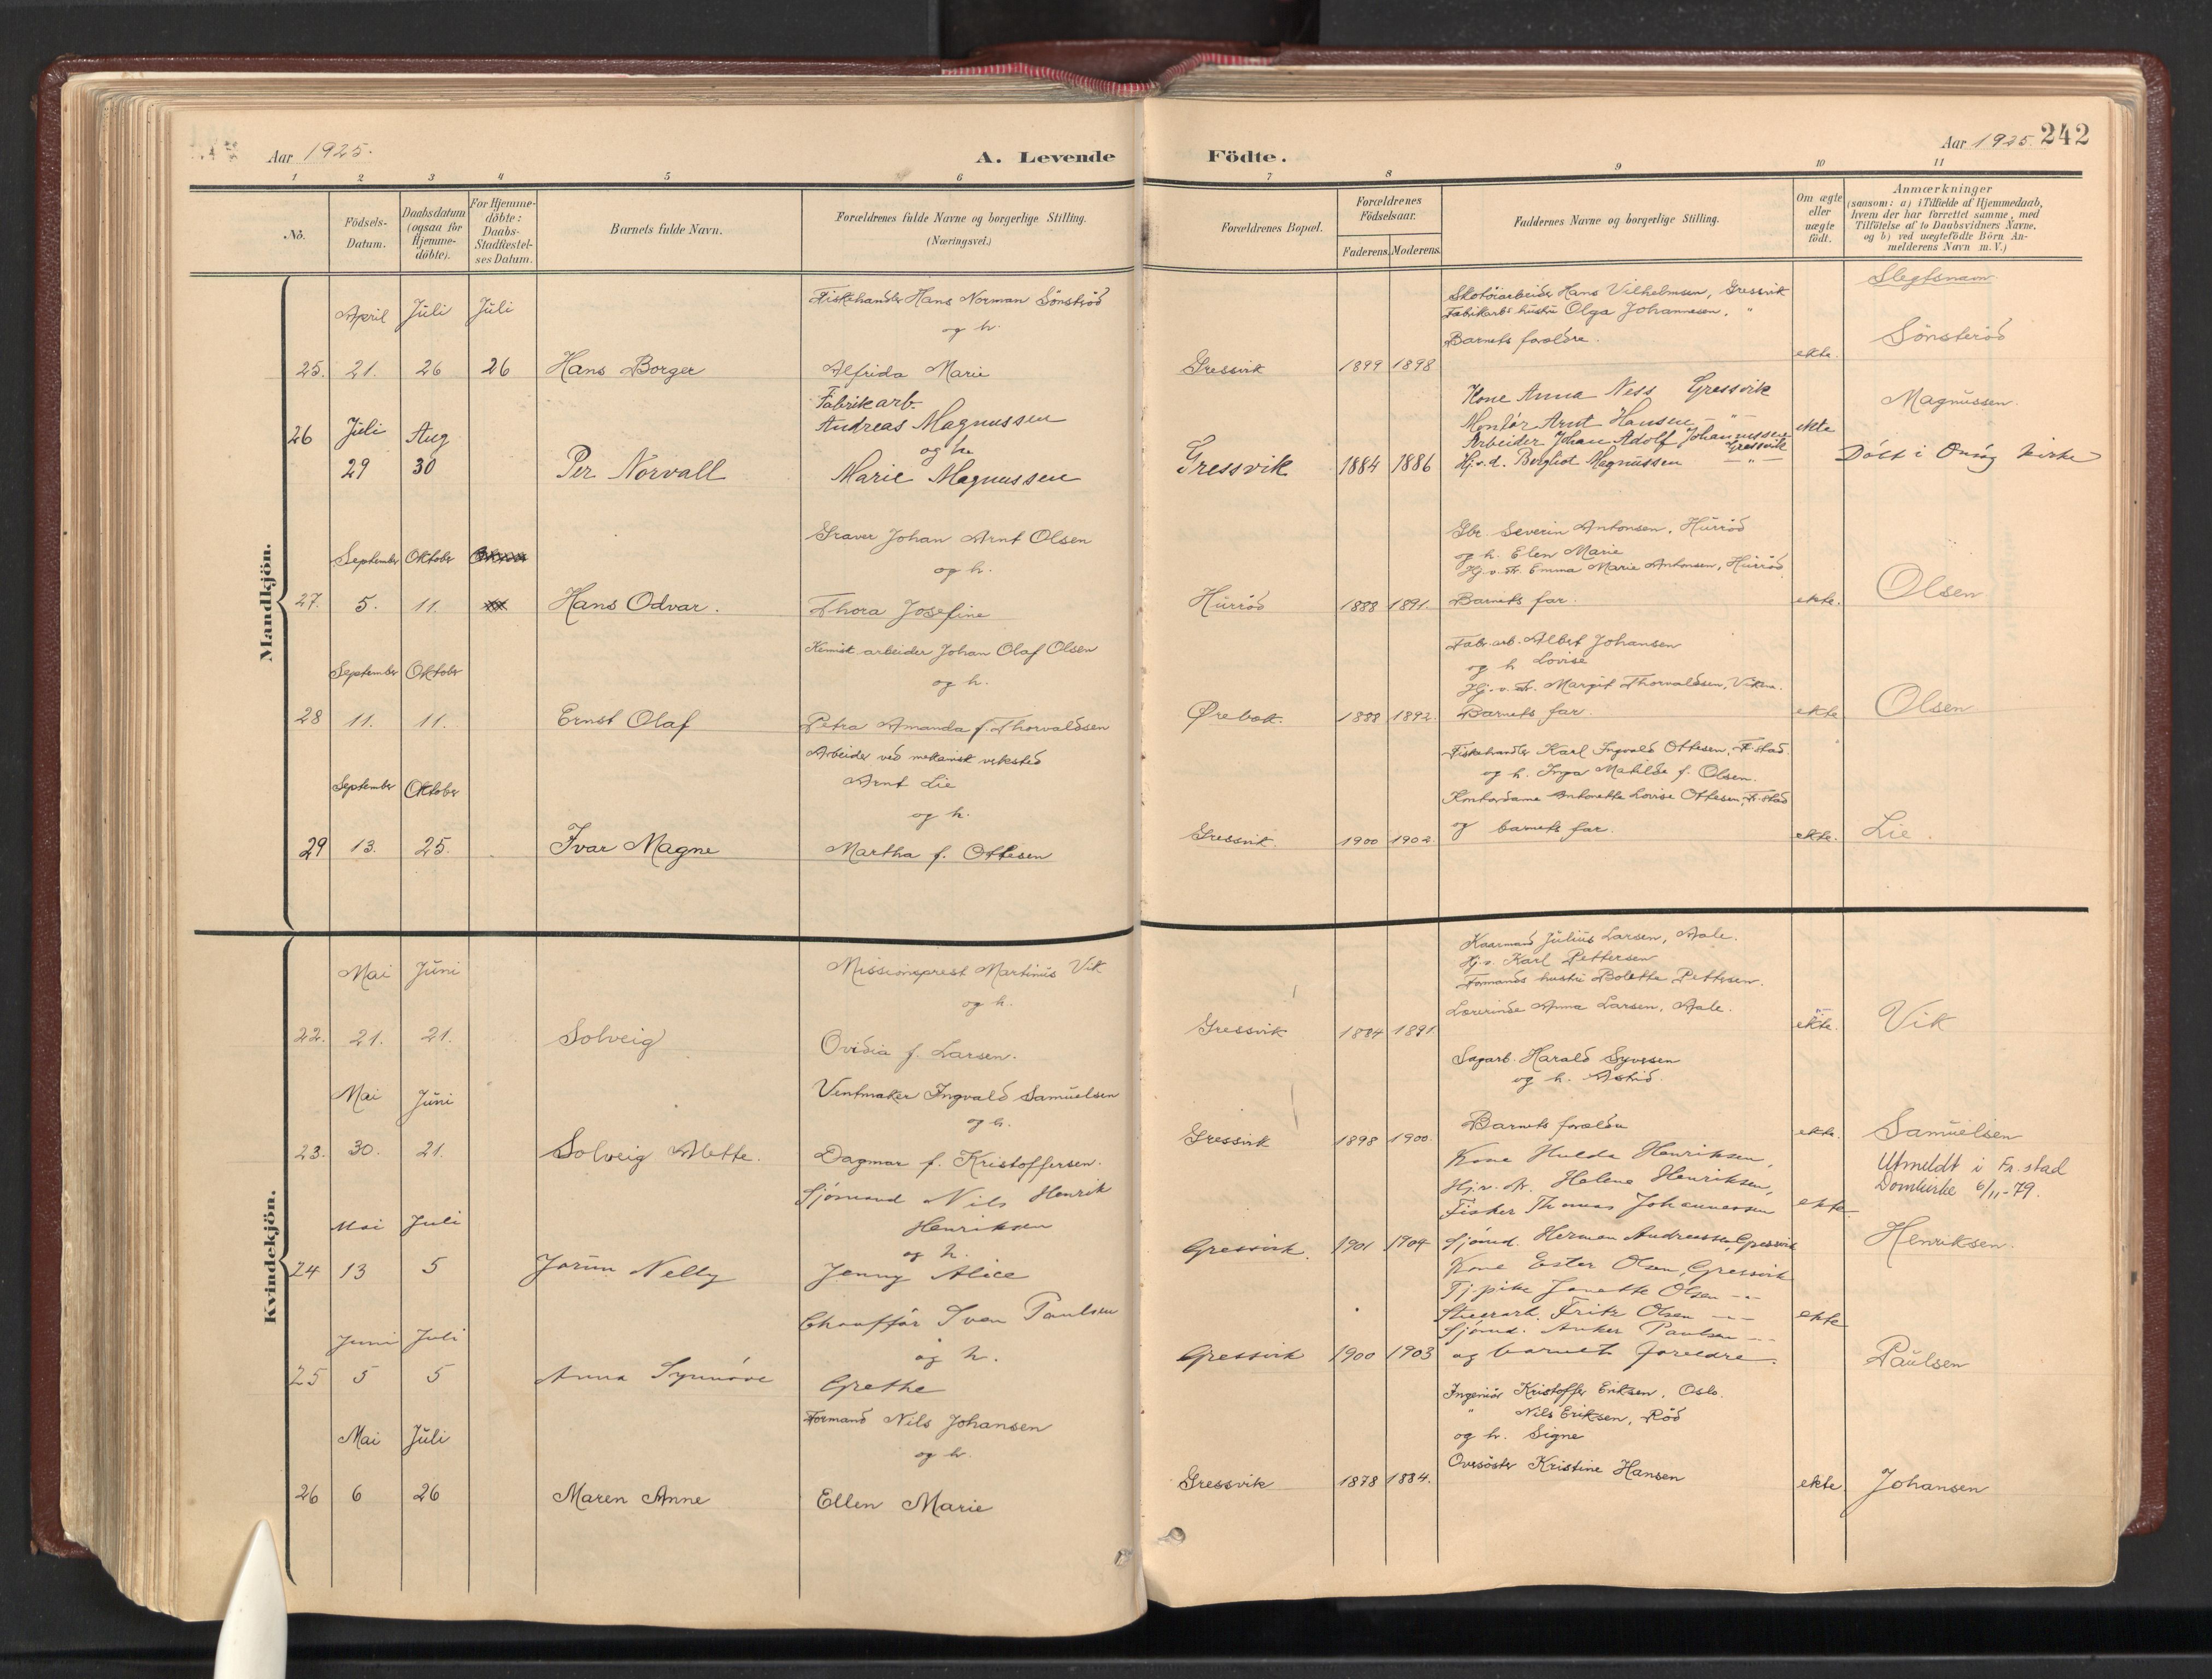 Aar 1925.
A. Levende Födte.
Aar 1925. 242
1 2 3 4 5 6 7 8 9 10 11
No.
Födsels-Datum.
Daabsdatum (ogsaa for Hjemme-döbte).
For Hjemme-döbte: Daabs-Stadfæstel-ses Datum.
Barnets fulde Navn.
Forældrenes fulde Navne og borgerlige Stilling. (Næringsvei.)
Forældrenes Bopæl.
Forældrenes Födselsaar.
Faderens. Moderens.
Faddernes Navne og borgerlige Stilling.
Om ægte eller uægte født.
Anmærkninger (saasom: a) i Tilfælde af Hjemmedaab, hvem der har forrettet samme, med Tilföielse af to Daabsvidners Navne, og b) ved uægtefödte Börn An-melderens Navn m. V.)
Mandkjön.
Slegtsnavn
25. April 21. Juli 26 Juli 26
Hans Borger
Fiskehandler Hans Norman Sönsteröd
og h.
Alfrida Marie
Gressvik 1899 1898
Skotöiarbeider Hans Vilhelmsen, Gressvik
Fabrikarbs hustru Olga Johannesen. "
Barnets forældre.
ekte.
Sönsteröd
26 Juli 29 Aug 30
Per Norvall
Fabrikarb.
Andreas Magnussen
og h
Marie Magnussen
Gressvik 1884 1886
Kone Anna Ness Gressvik
Montör Arnt Hansen — " —
Arbeider Johan Adolf Johannessen Gressvik
Hj.v.d. Bergliot Magnussen — " —
ekte
Magnussen.
Döbt i Onsöy kirke
27. September 5. Oktober 11.
Hans Odvar.
Graver Johan Arnt Olsen
og h.
Thora Josefine
Hurröd 1888 1891.
Gbr. Severin Antonsen, Hurröd
og h. Elen Marie
Hj.v. dr. Emma Marie Antonsen, Hurröd.
Barnets far.
ekte.
Olsen
28 September 11. Oktober 11.
Ernst Olaf
Kemisk arbeider Johan Olaf Olsen
og h.
Petra Amanda f. Thorvaldsen
Ørebæk. 1888 1892.
Fabr.arb. Albert Johansen
og h Lovise
Hj.v. dr. Margit Thorvaldsen, Viken.
Barnets far.
ekte
Olsen
29 September 13. Oktober 25.
Ivar Magne
Arbeider ved mekanisk verksted
Arnt Lie
og h.
Martha f. Ottesen
Gressvik. 1900 1902.
Fiskehandler Karl Ingvald Ottesen, F.stad.
og h. Inga Matilde f. Olsen.
Kontordame Antonette Lovise Ottesen, Fr.stad
og barnets far.
ekte.
Lie.
Kvindekjön.
22. Mai 21. Juni 21.
Solveig
Missionsprest Martinus Vik
og h.
Ovidia f. Larsen.
Gressvik 1884 1891.
Kaarmand Julius Larsen, Aale.
Hj.v. Karl Pettersen
Formands hustru Bolette Pettersen.
Lærerinde Anna Larsen, Aale.
ekte.
Vik
23. Mai 30. Juni 21.
Solveig Alette.
Ventmaker Ingvald Samuelsen
og h.
Dagmar f. Kristoffersen.
Gressvik 1898 1900.
Sagarb. Harald Syversen
og h. Astrid.
Barnets forældre
ekte.
Samuelsen
Utmeldt i Fr.stad
Domkirke 6/11-79.
24 Mai 13 Juli 5
Jorun Nelly
Sjömand Nils Henrik
Henriksen
og h.
Jenny Alice
Gressvik. 1901 1904
Kone Hulda Henriksen,
Hj.v. dr. Helene Henriksen,
Fisker Thomas Johannessen
Sjömd. Herman Andreassen, Gressvik
ekte
Henriksen.
25 Juni 5 Juli 5
Anna Synnöve
Chaufför Sven Paulsen
og h.
Grethe
Gressvik 1900 1903
Kone Ester Olsen, Gressvik
Tj.pike Janette Olsen — " —
Fritz Olsen — " —
Sjömd. Anker Paulsen — " —
og barnets foreldre.
ekte
Paulsen
26 Mai 6 Juli 26
Maren Anne
Formand Nils Johansen
og h.
Ellen Marie
Gressvik 1878 1884.
Ingeniör Kristoffer Eriksen, Oslo.
" Nils Eriksen, Röd
og h. Signe
Oversöster Kristine Hansen
ekte
Johansen